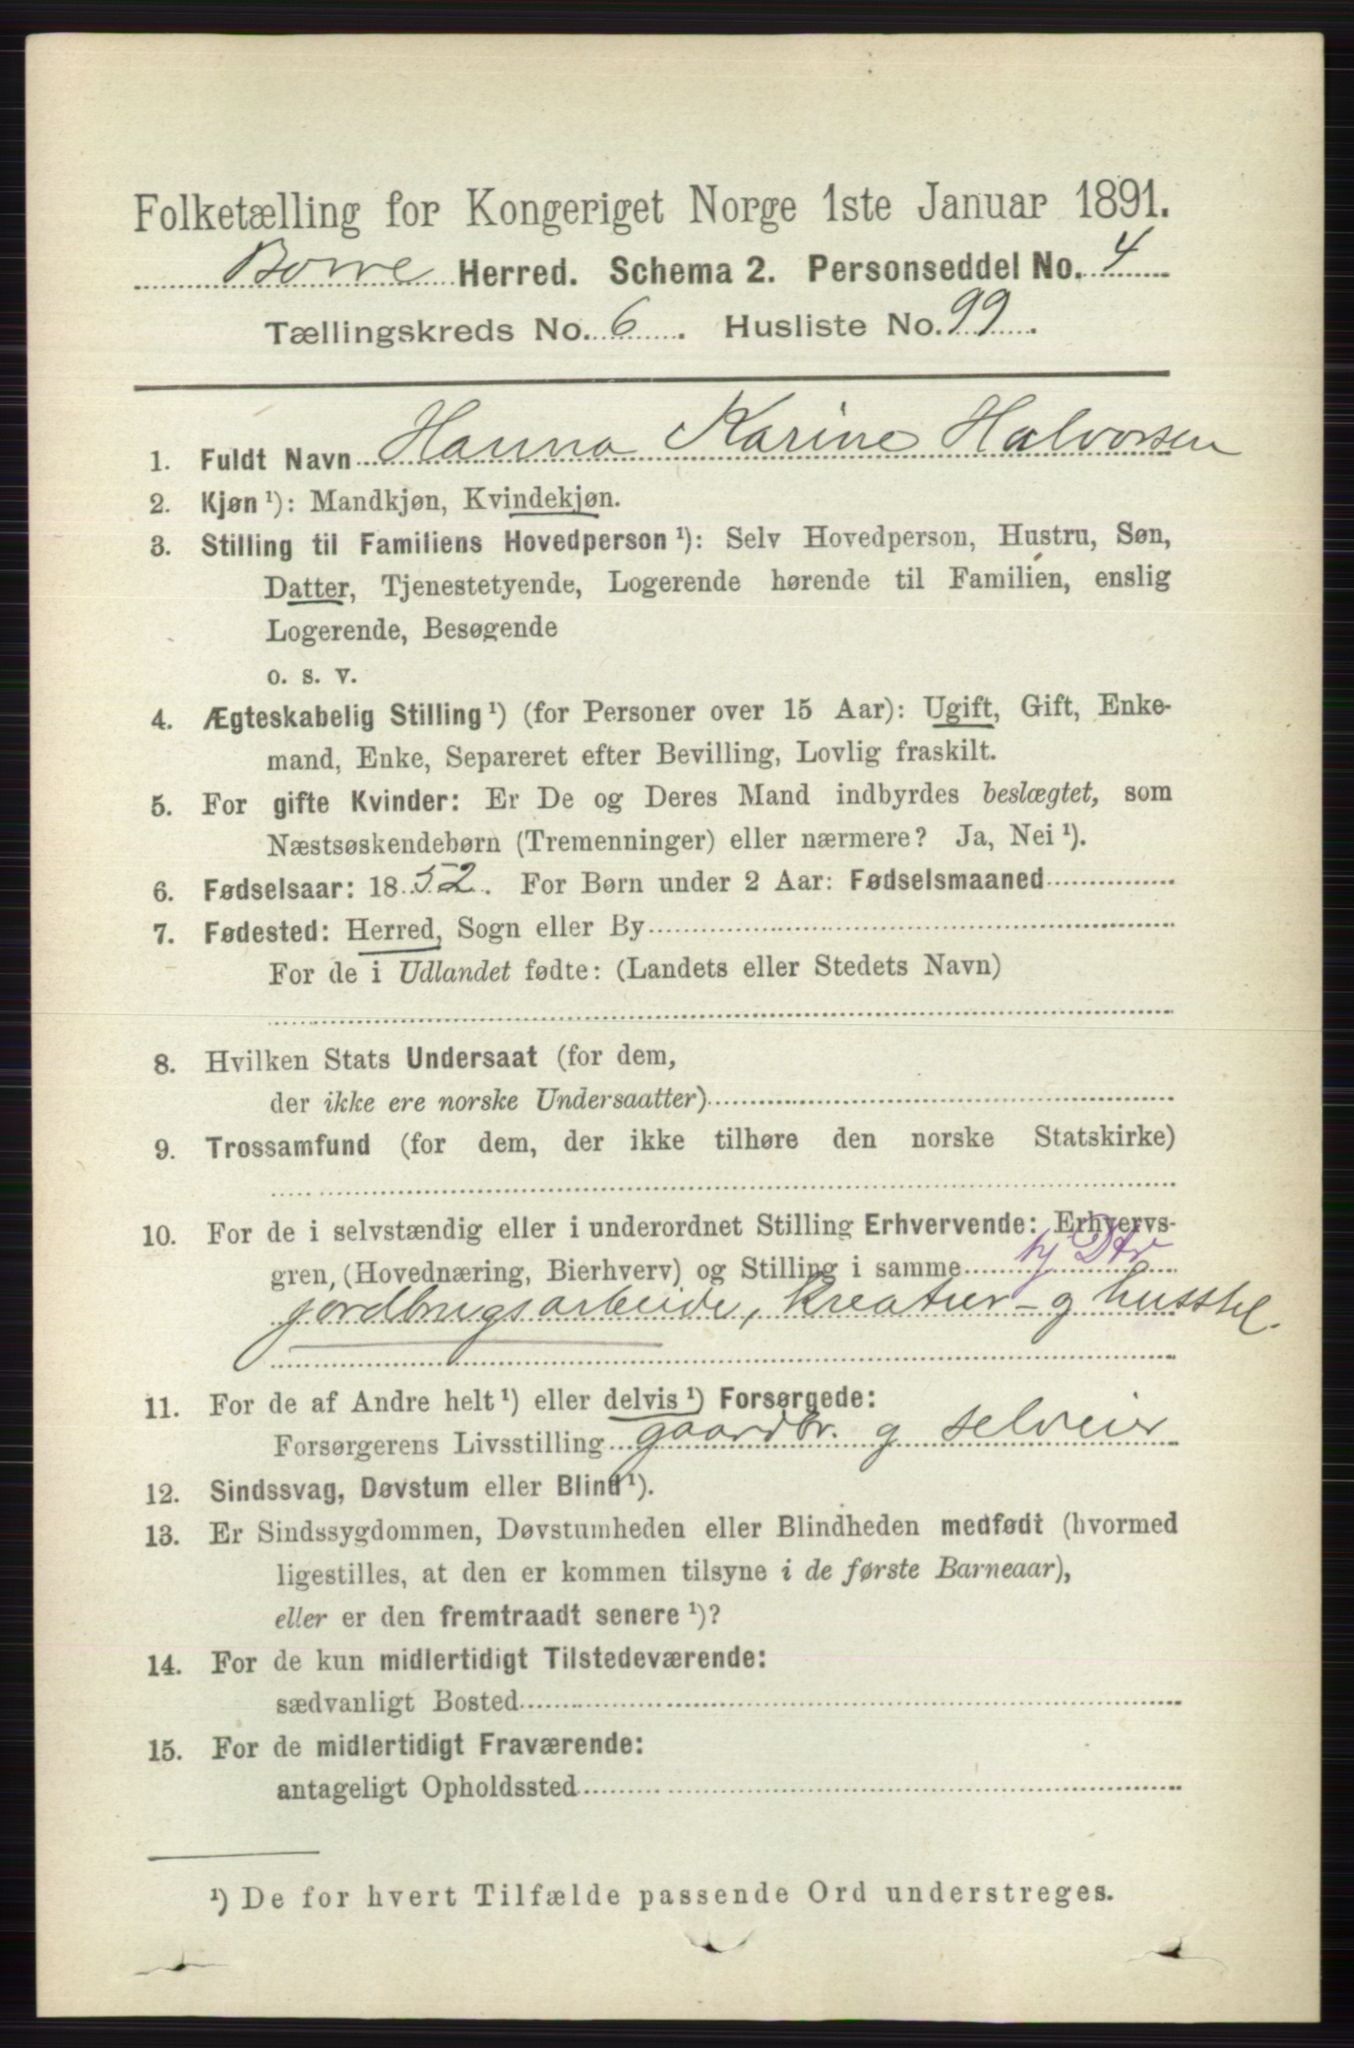 Folketælling for Kongeriget Norge 1ste Januar 1891.
Borre Herred. Schema 2. Personseddel No. 4
Tællingskreds No. 6. Husliste No. 99.
1. Fuldt Navn Hanna Karine Halvorsen
2. Kjøn ¹): Mandkjøn, Kvindekjøn.
3. Stilling til Familiens Hovedperson ¹): Selv Hovedperson, Hustru, Søn,
Datter, Tjenestetyende, Logerende hørende til Familien, enslig
Logerende, Besøgende
o. s. v.
4. Ægteskabelig Stilling ¹) (for Personer over 15 Aar): Ugift, Gift, Enke-
mand, Enke, Separeret efter Bevilling, Lovlig fraskilt.
5. For gifte Kvinder: Er De og Deres Mand indbyrdes beslægtet, som
Næstsøskendebørn (Tremenninger) eller nærmere? Ja, Nei ¹).
6. Fødselsaar: 1852. For Børn under 2 Aar: Fødselsmaaned
7. Fødested: Herred, Sogn eller By
For de i Udlandet fødte: (Landets eller Stedets Navn)
8. Hvilken Stats Undersaat (for dem,
der ikke ere norske Undersaatter)
9. Trossamfund (for dem, der ikke tilhøre den norske Statskirke)
10. For de i selvstændig eller i underordnet Stilling Erhvervende: Erhvervs-
gren, (Hovednæring, Bierhverv) og Stilling i samme hj Dtr
jordbrugsarbeide, kreatur- g husstel.
11. For de af Andre helt ¹) eller delvis ¹) Forsørgede:
Forsørgerens Livsstilling gaardbr. g selveier
12. Sindssvag, Døvstum eller Blind ¹).
13. Er Sindssygdommen, Døvstumheden eller Blindheden medfødt (hvormed
ligestilles, at den er kommen tilsyne i de første Barneaar),
eller er den fremtraadt senere ¹)?
14. For de kun midlertidigt Tilstedeværende:
sædvanligt Bosted
15. For de midlertidigt Fraværende:
antageligt Opholdssted
¹) De for hvert Tilfælde passende Ord understreges.